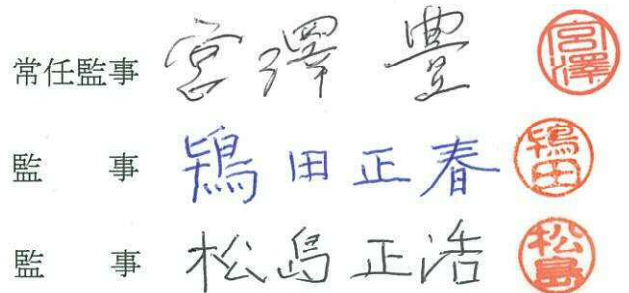 常任監事 宮澤 豊 宮澤
監 事 鴇田正春 鴇田
監 事 松島正浩 松島